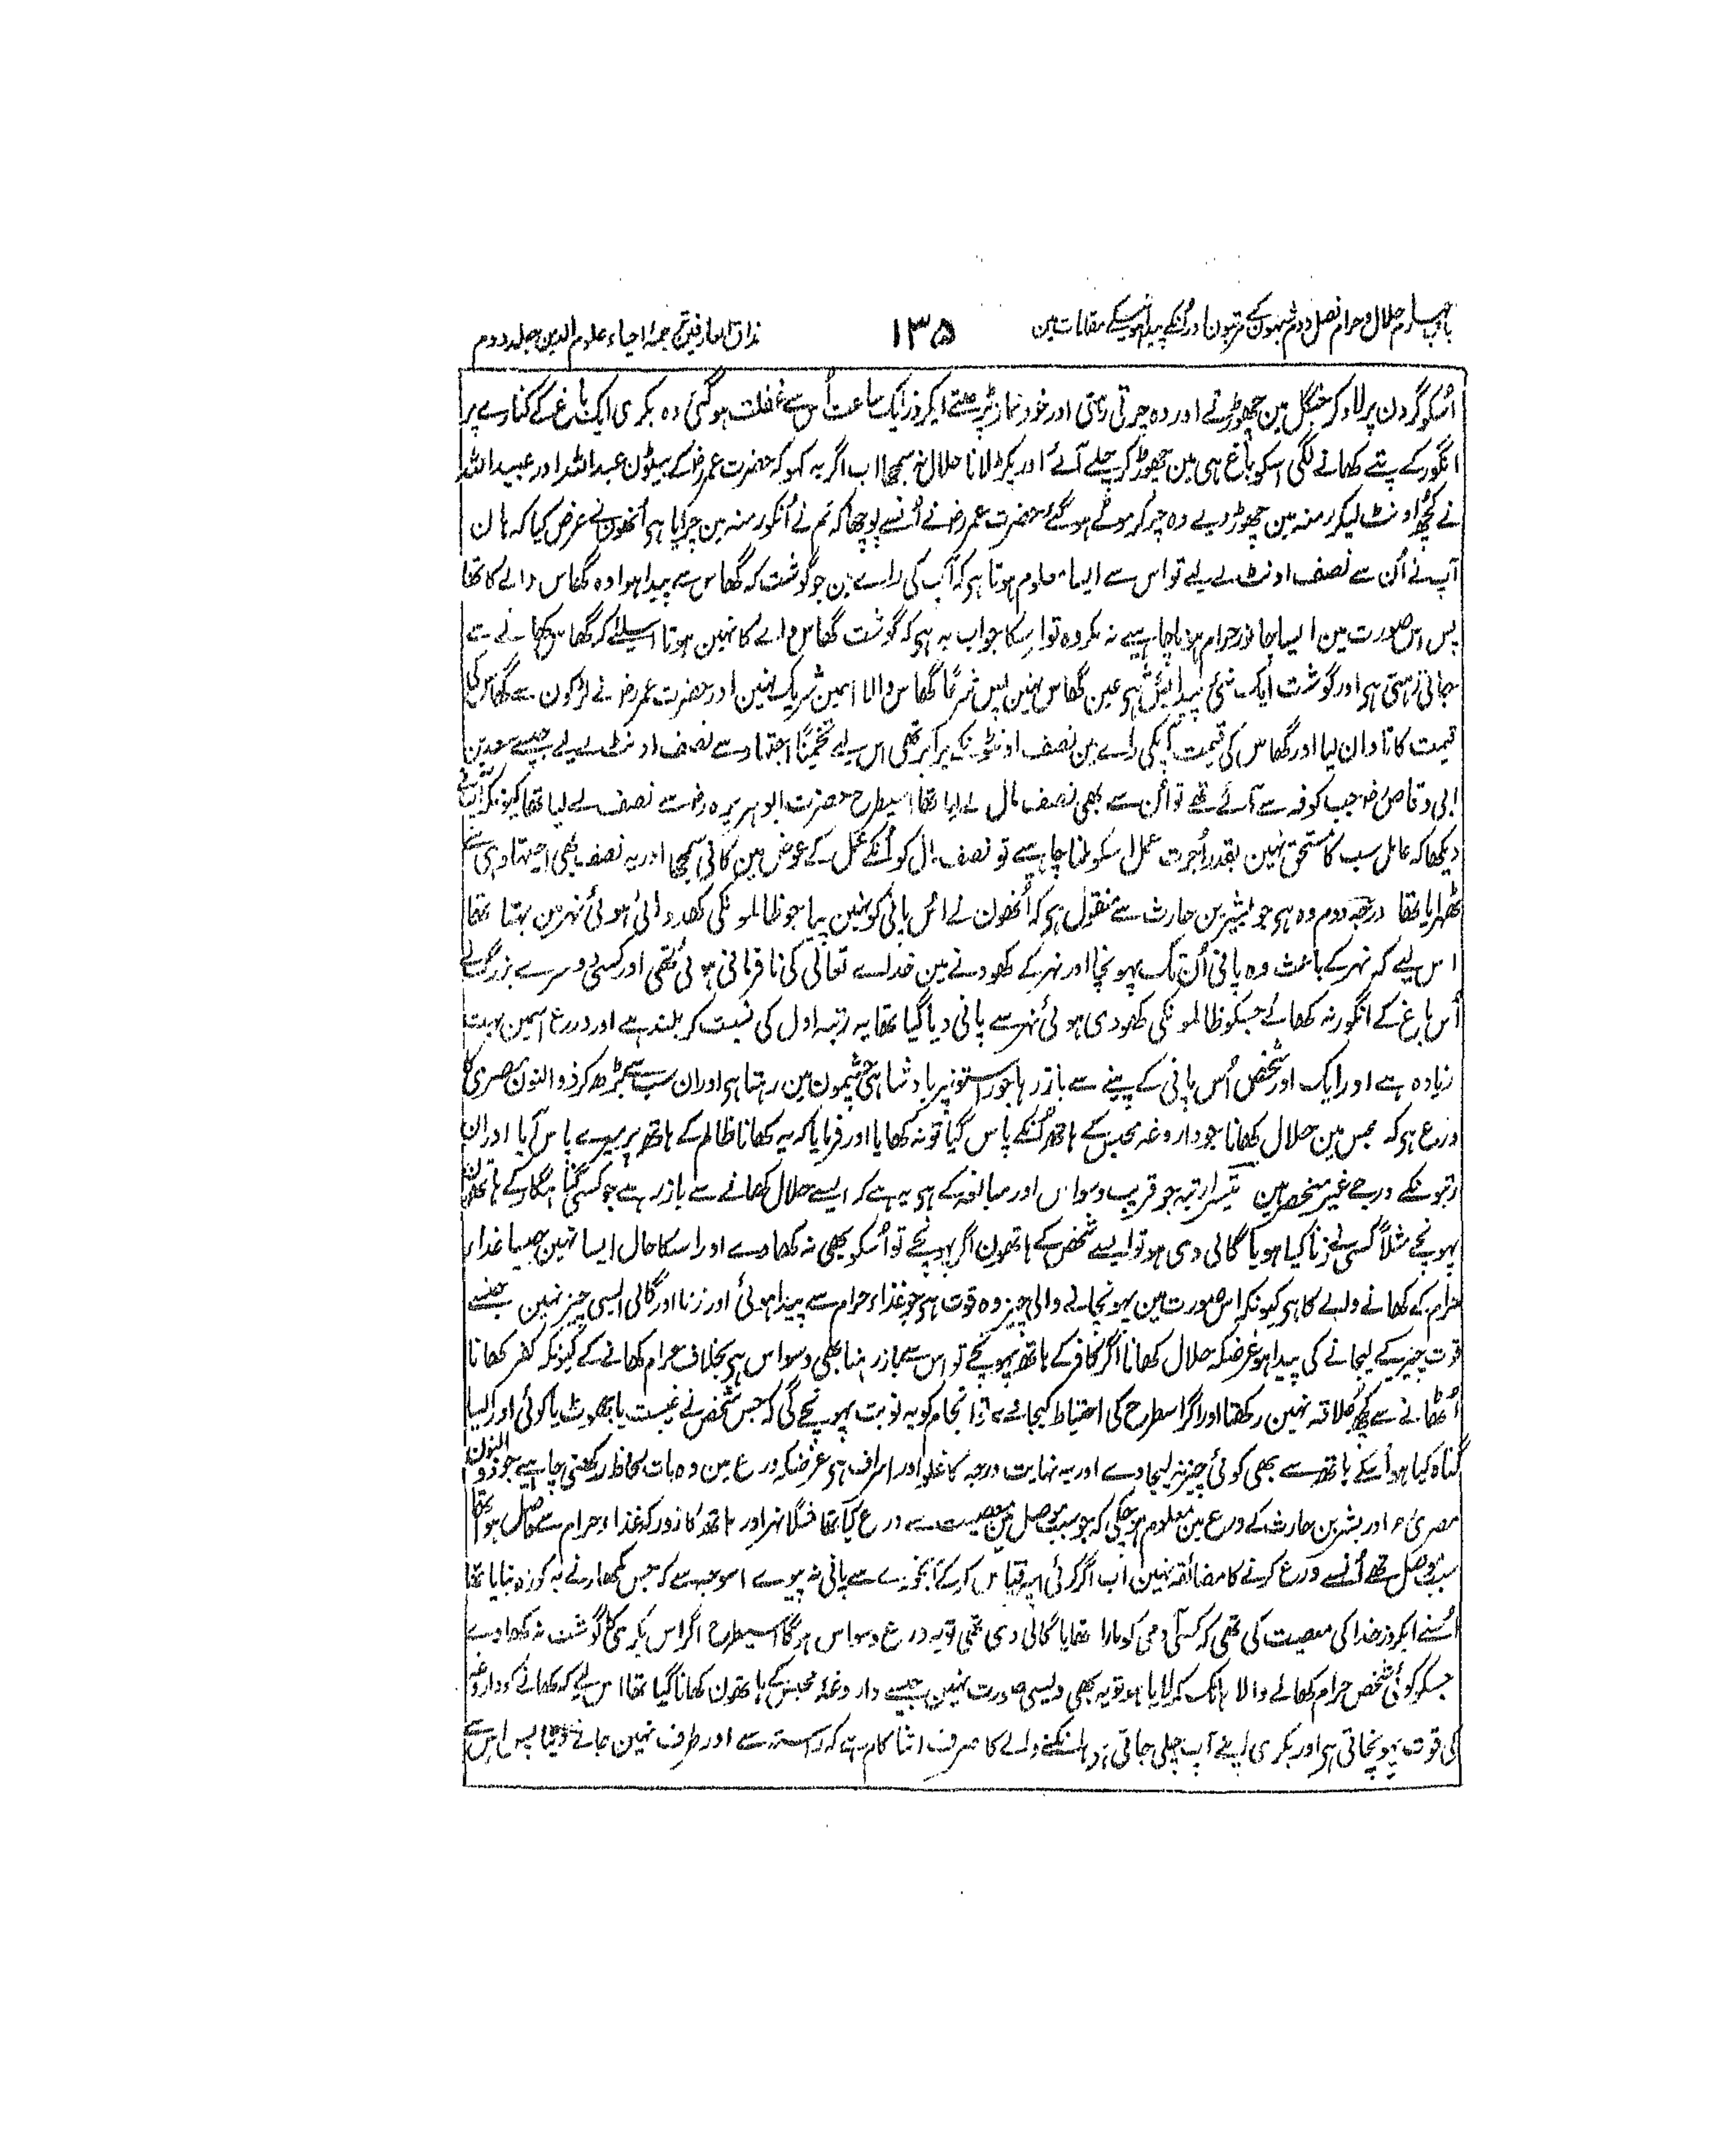 باب چہارم حلال و حرام فصل دوم شبہون کے مرتبون اور اُنکے پیدا ہونیکے مقامات مین
۱۳۵
مذاق العارفین ترجمۂ احیاء علوم الدین جلد دوم
اُسکو گردن پر لاد کر جنگل مین چھوڑتے اور وہ چرتی رہتی اور خود نماز پڑھتے ایکروز ایک ساعت اُس سے غفلت ہوگئی وہ بکری ایک باغ کے کنارے پر
انگور کے پتے کھانے لگی اسکو باغ ہی مین چھوڑ کر چلے آئے اور پکڑ لانا حلال نہ سمجھا اب اگر یہ کہو کہ حضرت عمر رض کے بیٹون عبد اللہ اور عبید اللہ
نے کچھ اونٹ لیکر رمنہ مین چھوڑ دیے وہ چر کر موٹے ہوگئے حضرت عمر رض نے اُنسے پوچھا کہ تم نے اُنکو رمنہ مین چرایا ہی اُنھون نے عرض کیا کہ ہان
آپ نے اُن سے نصف اونٹ لے لیے تو اس سے ایسا معلوم ہوتا ہی کہ آپ کی راے مین جو گوشت کہ گھاس سے پیدا ہوا وہ گھاس والے کا تھا
پس اس صورت مین ایسا جانور حرام ہونا چاہیے نہ مکروہ تو اسکا جواب یہ ہی کہ گوشت گھاس والے کا نہین ہوتا اسلیے کہ گھاس کھانے سے
جاتی رہتی ہی اور گوشت ایک شی پیدایش ہی عین گھاس نہین پس شرعًا گھاس والا اسمین شریک نہین اور حضرت عمر رض نے لڑکون سے گھاس کی
قیمت کا تاوان لیا اور گھاس کی قیمت آپکی راے مین نصف اونٹونکے برابر تھی اس لیے تخمینًا اجتہاد سے نصف اونٹ لے لیے جیسے سعد بن
ابی وقاص رض جب کوفہ سے آئے تھے تو اُن سے بھی نصف مال لے لیا تھا اسیطرح حضرت ابو ہریرہ رض سے نصف لے لیا تھا کیونکہ آپنے
دیکھا کہ عامل سب کا مستحق نہین بقدر اُجرت عمل اسکو ملنا چاہیے تو نصف مال کو اُنکے عمل کے عوض مین کافی سمجھا اور یہ نصف بھی اجتہاد ہی سے
ٹھہرایا تھا درجہ دوم وہ ہی جو بشر بن حارث سے منقول ہی کہ اُنھون نے اُس پانی کو نہین پیا جو ظالمونکی کھدوائی ہوئی نہر مین بہتا تھا
اس لیے کہ نہر کے باعث وہ پانی اُن تک پہونچا اور نہر کے کھودنے مین خداے تعالی کی نافرمانی ہوئی تھی اور کسی دوسرے بزرگ نے
اُس باغ کے انگور نہ کھائے جسکو ظالمونکی کھودی ہوئی نہر سے پانی دیا گیا تھا یہ رتبہ اول کی نسبت کر بلند ہے اور ورع اسمین بہت
زیادہ ہے اور ایک اور شخص اُس پانی کے پینے سے باز رہا جو راستونپر بادشاہی چشمون مین رہتا ہی اور ان سب سے بڑھ کر ذو النون مصری کا
ورع ہی کہ محبس مین حلال کھانا جو داروغہ محبس کے ہاتھ اُنکے پاس گیا تو نہ کھایا اور فرمایا کہ یہ کھانا ظالم کے ہاتھ پر میرے پاس آیا اور ان
رتبونکے درجے غیر منحصر ہین تیسرا رتبہ جو قریب وسواس اور مبالغہ کے ہی یہ ہے کہ ایسے حلال کھانے سے باز رہے جو کسی گنہگار کے ہاتھون
پہونچے مثلاً کسی نے زنا کیا ہو یا گالی دی ہو تو ایسے شخص کے ہاتھون اگر پہونچے تو اُسکو بھی نہ کھاوے اور اسکا حال ایسا نہین جیسا غذاء
حرام کے کھانے والے کا ہی کیونکہ اس صورت مین پہونچانے والی چیز وہ قوت ہی جو غذاء حرام سے پیدا ہوئی اور زنا اور گالی ایسی چیز نہین جنسے
قوت چیز کے لیجانے کی پیدا ہو غرضکہ حلال کھانا اگر کافر کے ہاتھ پہونچے تو اس سے باز رہنا بھی وسواس ہی بخلاف حرام کھانے کے کیونکہ کفر کھانا
اُٹھانے سے کچھ علاقہ نہین رکھتا اور اگر اسطرح کی احتیاط کیجائے تو انجام کو یہ نوبت پہونچے گی کہ جس شخص نے غیبت یا جھوٹ یا کوئی اور ایسا
گناہ کیا ہو اُسکے ہاتھ سے بھی کوئی چیز نہ لیجاوے اور یہ نہایت درجہ کا غلو اور اسراف ہی غرضکہ ورع مین وہ بات لحاظ رکھنی چاہیے جو ذو النون
مصری رح اور بشر بن حارث کے ورع مین معلوم ہوچکی کہ جو سبب موصل مین معصیت سے ورع کیا تھا مثلا نہر اور ہاتھ کا زور کہ غذاء حرام سے حاصل ہوا تھا
سبب موصل تھے اُنسے ورع کرنے کا مضائقہ نہین اب اگر کوئی اسپر قیاس کرکے آبخورے سے پانی نہ پیوے اسوجہ سے کہ جس کمھار نے یہ کوزہ بنایا تھا
اُسنے ایکروز خدا کی معصیت کی تھی کہ کسی آدمی کو مارا تھا یا گالی دی تھی تو یہ ورع وسواس ہوگا اسیطرح اگر اس بکری کا گوشت نہ کھاوے
جسکو کوئی شخص حرام کھانے والا ہانک کر لایا ہو تو یہ بھی ویسی صورت نہین جیسے داروغہ محبس کے ہاتھون کھانا گیا تھا اس لیے کہ کھانے کو داروغہ
کی قوت پہونچاتی ہی اور بکری اپنے آپ چلی جاتی ہی ہانکنے والے کا صرف اتنا کام ہے کہ راستہ سے اور طرف نہین جانے دیتا پس اس سے